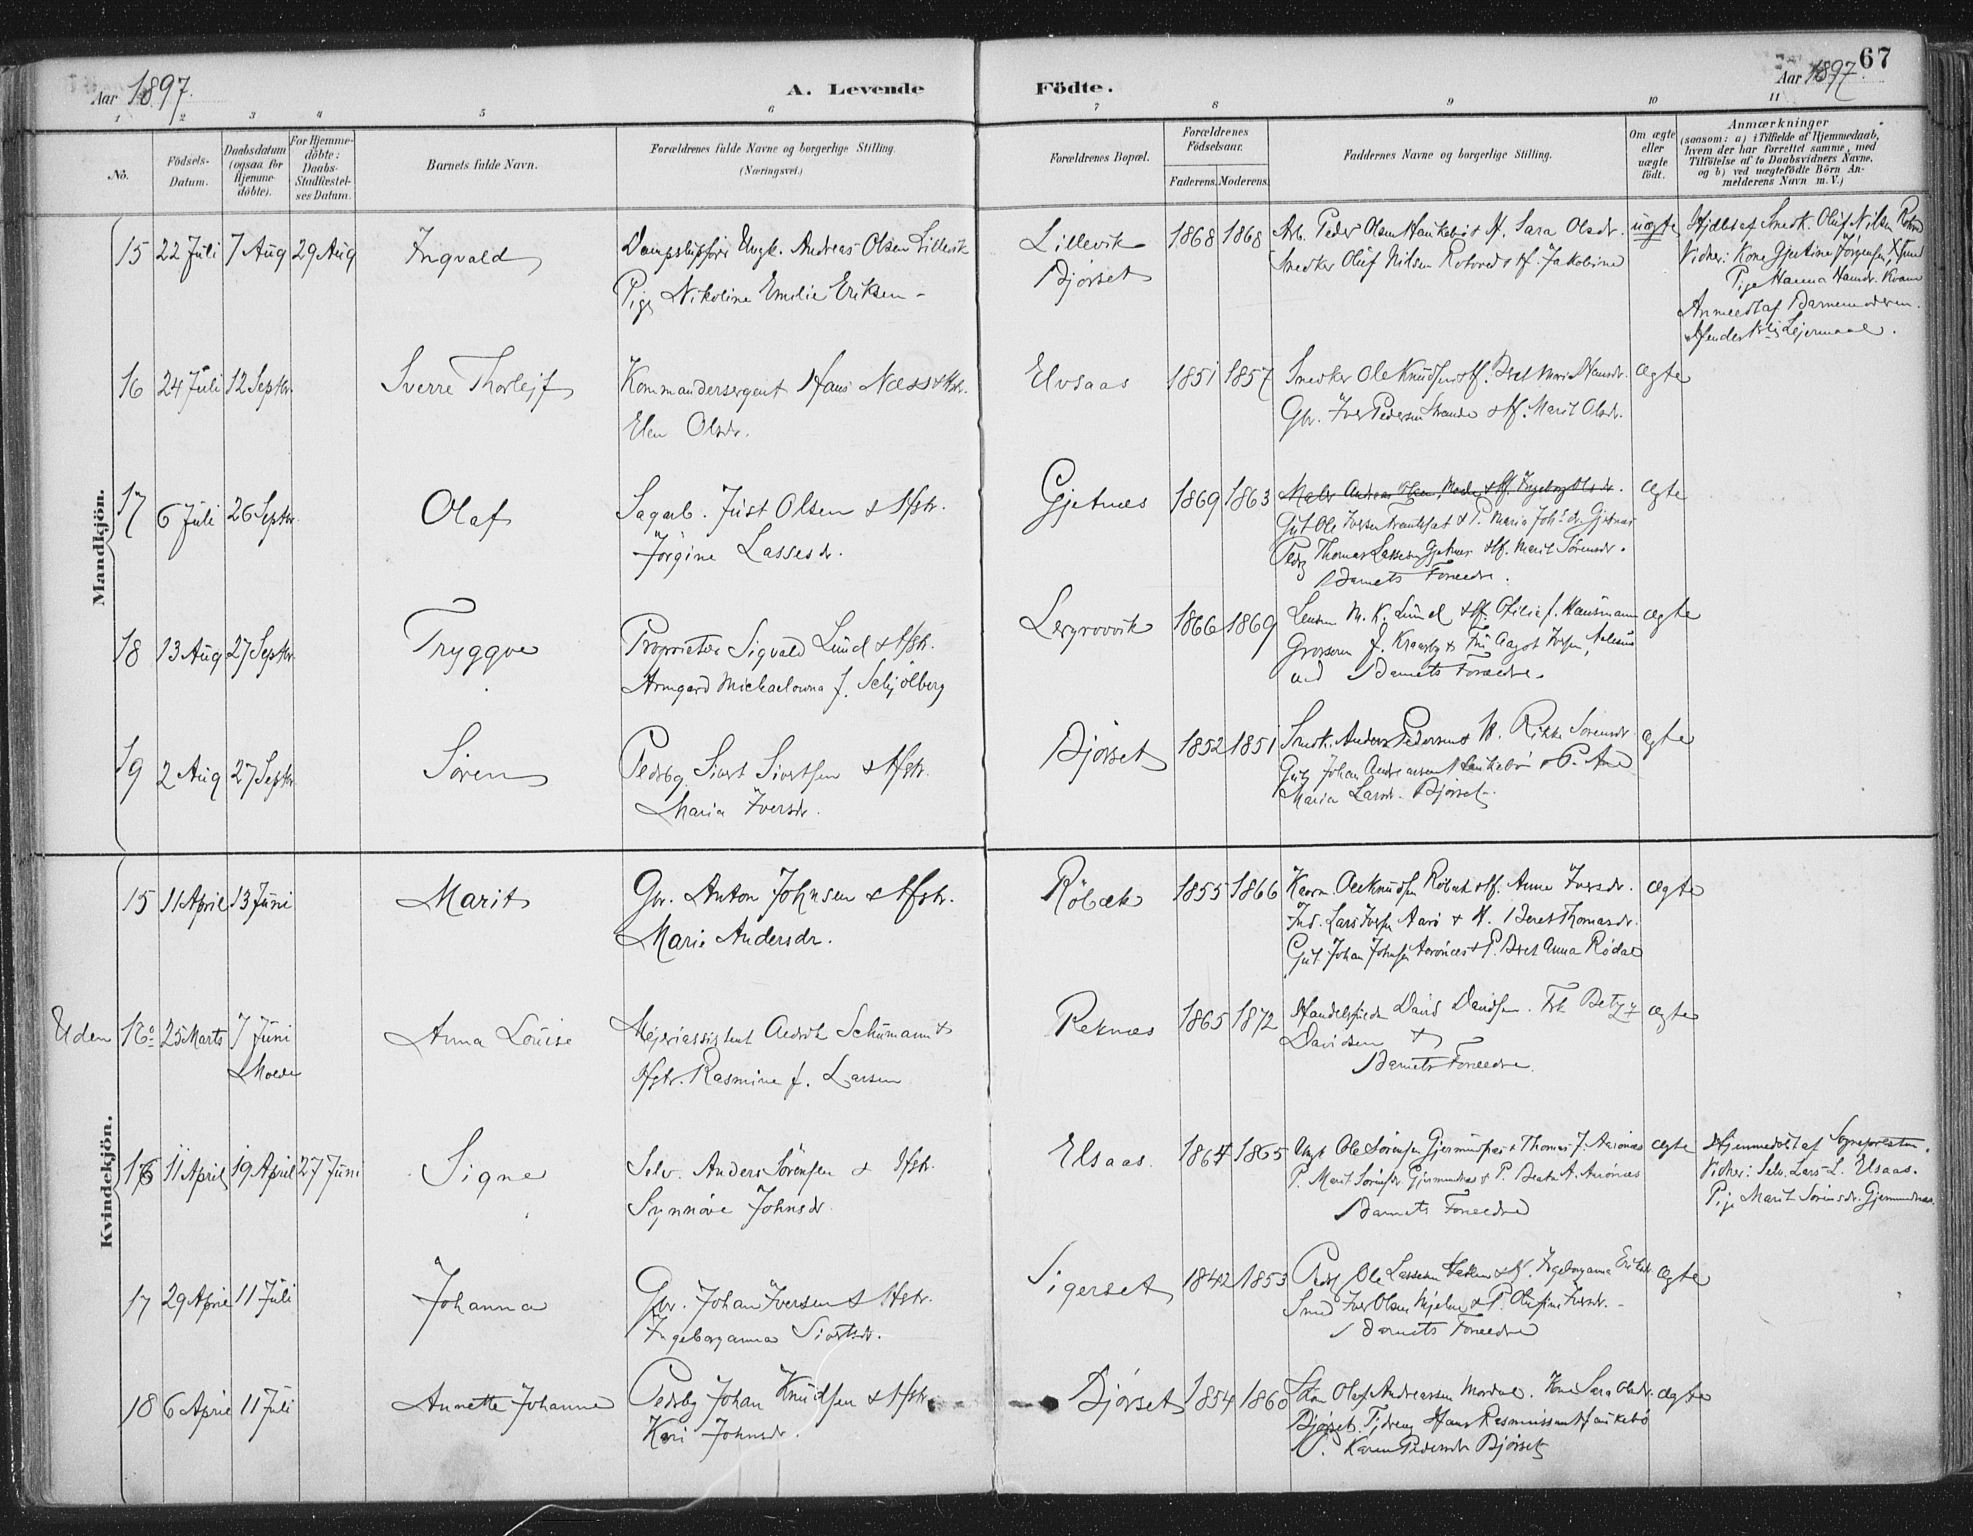 Aar 1897.
A. Levende Födte.
Aar 1897.
67
1 2 3 4 5 6 7 8 9 10 11
No.
Födsels-Datum.
Daabsdatum (ogsaa for Hjemme-döbte).
For Hjemme-döbte: Daabs-Stadfæstel-ses Datum.
Barnets fulde Navn.
Forældrenes fulde Navne og borgerlige Stilling. (Næringsvei.)
Forældrenes Bopæl.
Forældrenes Födselsaar.
Faderens. Moderens.
Faddernes Navne og borgerlige Stilling.
Om ægte eller uægte födt.
Anmærkninger
(saasom: a) i Tilfælde af Hjemmedaab,
hvem der har forrettet samme, med
Tilföielse af to Daabsvidners Navne,
og b) ved uægtefödte Börn An-
melderens Navn m. V.)
Mandkjön.
15 22 Juli 7 Aug 29 Aug Ingvald
Ungk. Andreas Olsen Lillevik
Pige Nikoline Emilie Eriksen
Lillevik
Bjørset
1868 1868
Arb. Peder Olsen Haukebö & H. Sara Olsdr.
Snedker Oluf Nilsen Rotved & H. Jakobine
uægte
Hjdbt af Snedk. Oluf Nilsen
Vidner: Kone Gjertine Jørgensen,
Pige Hanna Hansdr. Kvam
Anmeldt af Barnemoderen.
Hendes Leiermaal.
16 24 Juli 12 Septbr. Sverre Thorlejf
Kommandersergent Hans Næss & Hstr.
Elen Olsdr.
Elvsaas 1851 1857
Snedker Ole Knudsen & H. Beret Marie Hansdr.
Gbr. Iver Pedersen Strande & H. Marit Olsdr.
ægte
17 6 Juli 26 Septbr. Olaf
Sagarb. Just Olsen & Hstr.
Jörgine Lassesdr.
Gjetnæs 1869 1863
Maler Andreas Olsen, Molde, & H. Ingeborg Olsdr.
Gut Ole Iversen & P. Maria Johsdr. Gjetnæs
Pedb Thomas Lassesen Gjetnæs & H. Marit Sörensdr.
Barnets Forældre.
ægte
18 13 Aug 27 Septbr. Tryggve
Proprietær Sigvald Lund & Hstr.
Armgard Michaelowna f. Schjölberg
Lergrovvik 1866 1869
M. K. Lund & H. Otilie f. Hausmann
Grosserer J. Kraasby & Fru Aagot Iversen, Aalesund
Barnets Forældre.
ægte
19 2 Aug 27 Septbr. Sören
Pedsbg Sivert Sivertsen & Hstr.
Maria Iversdr.
Bjørset 1852 1851
Snedk. Anders Pedersen & H. Rikke Sörensdr.
Gut Johan Andreassen Haukebö & P. Ane
Maria Larsdr. Bjørset
ægte
Kvindekjön.
15 11 April 13 Juni Marit
Gbr. Anton Johnsen & Hstr.
Marie Andersdr.
Röbæk 1855 1866
Ole Knudsen Röbæk & H. Anne Iversdr.
Ind. Lars Iversen Aarö & H. Beret Thomasdr.
Gut Johan Johnsen Aarönæs & P. Beret Anna Rödal
ægte
Uden No. 25 Marts 7 Juni Molde Anna Louise
Mejeriassistent Aedrik Schumann &
Hstr. Rasmine f. Larsen
Reknæs 1865 1872
David Davidsen. Frk Betzy
Davidsen &
Barnets Forældre.
ægte
16 11 April 19 April 27 Juni Signe
Selv. Anders Sörensen & Hstr.
Synnöve Johnsdr.
Elsaas. 1864 1865
Ungk Ole Sörensen Gjermundnæs & Thomas J. Aarönæs
P. Marit Sörensdr. Gjermundnæs & P. Beate A. Aarönæs
Barnets Forældre
ægte
Hjemmedöbt af Sognepræsten.
Vidner: Selv. Lars L. Elsaas.
Pige Marit Sörensdr. Gjermundnæs.
17 29 April 11 Juli Johanna
Gbr. Johan Iversen & Hstr.
Ingeborganna Sivertsdr.
Sigerset 1842 1853
Ole Lassesen & H. Ingeborganna Eriksdr.
Smed Iver Olsen Mjelve & P. Olufine Iversdr.
Barnets Forældre
ægte
18 6 April 11 Juli Annette Johanne
Pedsbg Johan Knudsen & Hstr.
Kari Johnsdr.
Bjørset 1854 1860
Olaf Andreassen Mordal. Kone Sara Olsdr.
Bjørset. Tjdreng Hans Rasmussen Haukebö
P. Karen Pedersdr Bjørset
ægte